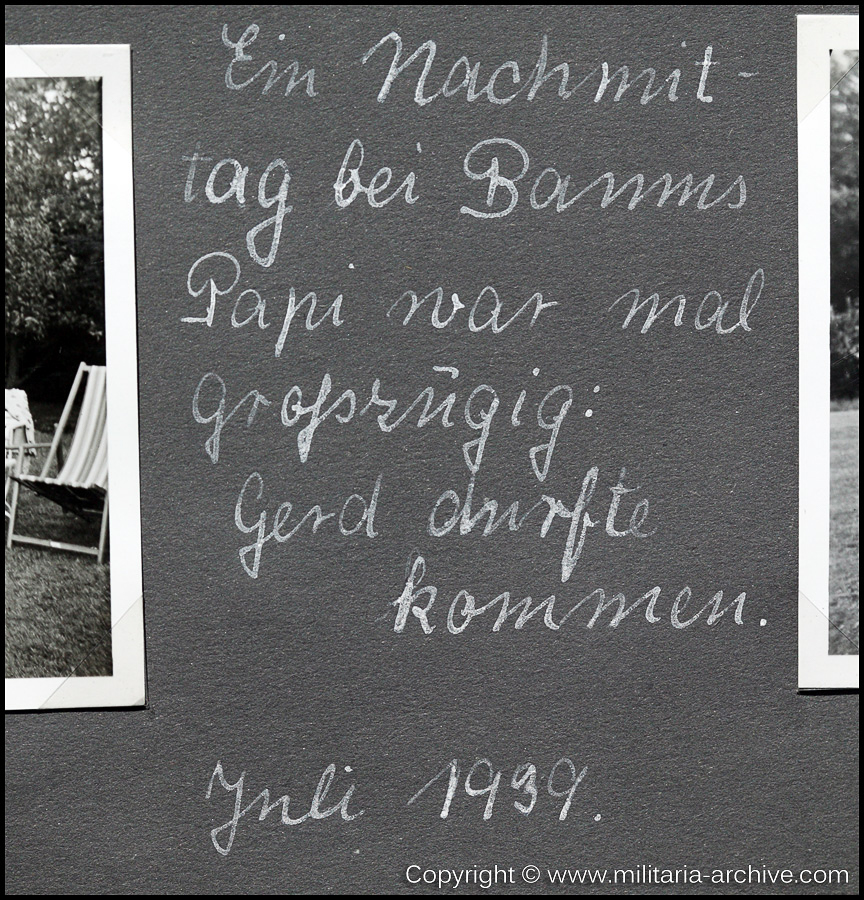 Ein Nachmit-
tag bei Baums
Papi war mal
großzügig:
Gerd durfte
kommen.
Juli 1939.
Copyright © www.militaria-archive.com